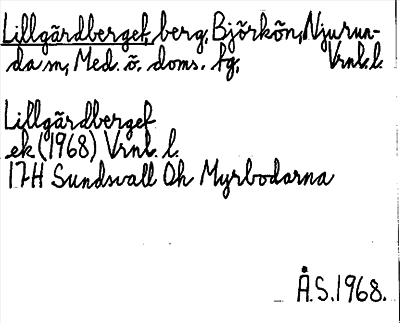 Lillgårdberget, berg, Björkön, Njurun-
da sn, Med. ö. doms. tg, Vrnl.l.
Lillgårdberget
ek (1968) Vrnl. l.
17H Sundsvall Oh Myrbodarna
Å.S. 1968.